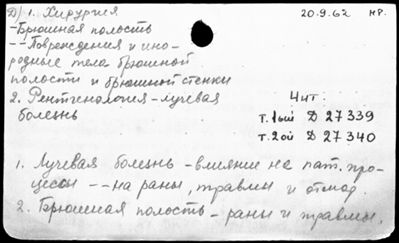 Д) 1. Хирургия 20.9.62 НР.
-Брюшная полость
--Повреждения и ино-
родные тела брюшной
полости и брюшной стенки
2. Рентгенология-лучевая Чит
болезнь т.1ый Д 27339
т.2ой Д 27340
1. Лучевая болезнь -влияние на пат. про-
цессы --на раны, травмы и отмор.
2. Брюшная полость - раны и травмы.